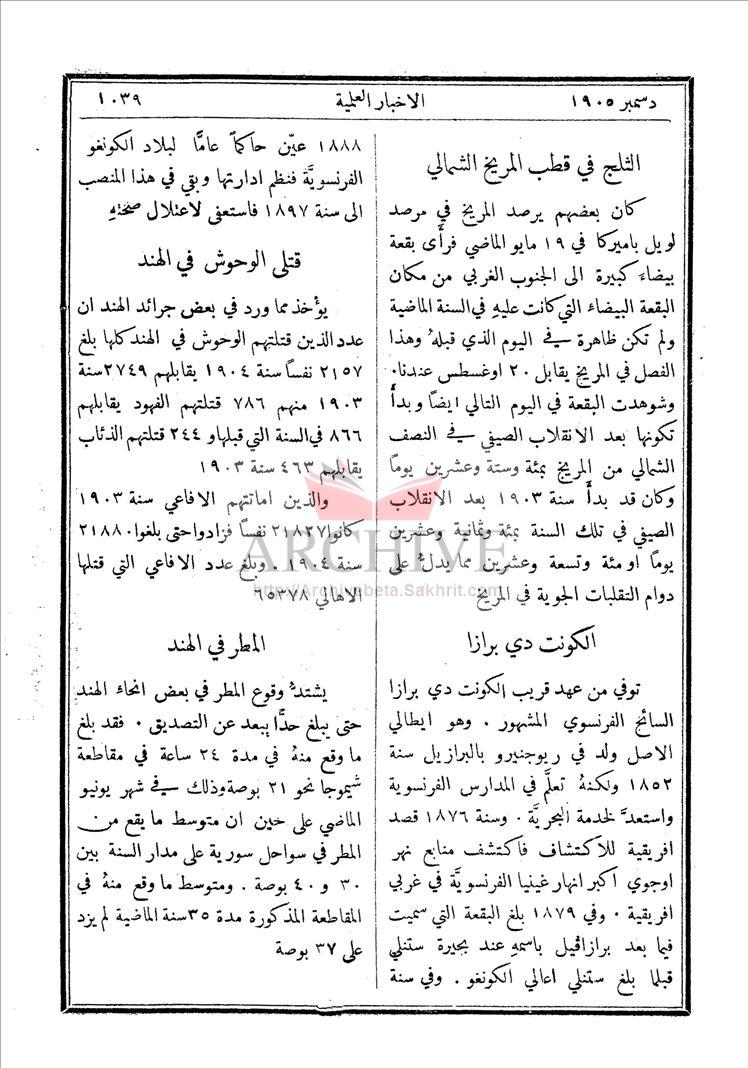 دسمبر ١٩٠٥
الاخبار العلمية
١٠٣٩
الثلج في قطب المريخ الشمالي
كان بعضهم يرصد المريخ في مرصد
لويل باميركا في ١٩ مايو الماضي فرأى بقعة
بيضاء كبيرة الى الجنوب الغربي من مكان
البقعة البيضاء التي كانت عليهِ في السنة الماضية
ولم تكن ظاهرة في اليوم الذي قبلهُ وهذا
الفصل في المريخ يقابل ٢٠ اوغسطس عندنا.
وشوهدت البقعة في اليوم التالي ايضاً وبدأ
تكونها بعد الانقلاب الصيفي في النصف
الشمالي من المريخ بمئة وستة وعشرين يوماً
وكان قد بدأ سنة ١٩٠٣ بعد الانقلاب
الصيفي في تلك السنة بمئة وثمانية وعشرين
يوماً او مئة وتسعة وعشرين مما يدلُّ على
دوام التقلبات الجوية في المريخ
الكونت دي برازا
توفي من عهد قريب الكونت دي برازا
السائح الفرنسوي المشهور . وهو ايطالي
الاصل ولد في ريوجنيرو بالبرازيل سنة
١٨٥٢ ولكنهُ تعلَّم في المدارس الفرنسوية
واستعدَّ لخدمة البحريَّة . وسنة ١٨٧٦ قصد
افريقية للاكتشاف فاكتشف منابع نهر
اوجوي آكبر انهار غينيا الفرنسويَّة في غربي
افريقية . وفي ١٨٧٩ بلغ البقعة التي سميت
فيما بعد برازاڤيل باسمهِ عند بحيرة ستنلي
قبلما بلغ ستنلي اعالي الكونغو . وفي سنة
١٨٨٨ عيّن حاكماً عامًّا لبلاد الكونغو
الفرنسويَّة فنظم ادارتها وبقي في هذا المنصب
الى سنة ١٨٩٧ فاستعفى لاعتلال صحتهِ
قتلى الوحوش في الهند
يوْخذ مما ورد في بعض جرائد الهند ان
عدد الذين قتلتهم الوحوش في الهند كلها بلغ
٢١٥٧ نفساً سنة ١٩٠٤ يقابلهم ٢٧٤٩ سنة
١٩٠٣ منهم ٧٨٦ قتلتهم الفهود يقابلهم
٨٦٦ في السنة التي قبلها و٢٤٤ قتلتهم الذئاب
يقابلهم ٤٦٣ سنة ١٩٠٣
والذين اماتتهم الافاعي سنة ١٩٠٣
كانوا ٢١٨٢٧ نفساً فزادوا حتى بلغوا ٢١٨٨٠
سنة ١٩٠٤ . وبلغ عدد الافاعي التي قتلها
الاهالي ٦٥٣٧٨
المطر في الهند
يشتدُّ وقوع المطر في بعض انحاء الهند
حتى يبلغ حدًّا يبعد عن التصديق . فقد بلغ
ما وقع منهُ في مدة ٢٤ ساعة في مقاطعة
شيموجا نحو ٢١ بوصة وذلك في شهر يونيو
الماضي على حين ان متوسط ما يقع من
المطر في سواحل سورية على مدار السنة بين
٣٠ و ٤٠ بوصة . ومتوسط ما وقع منهُ في
المقاطعة المذكورة مدة ٣٥ سنة الماضية لم يزد
على ٣٧ بوصة
ARCHIVE
http://Archivebeta.Sakhrit.com